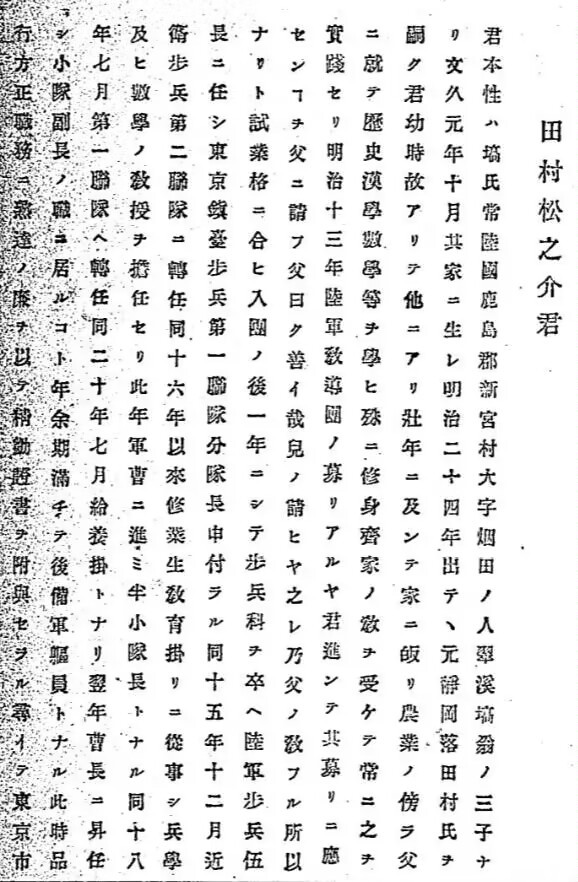 田村松之介君
君本性ハ塙氏常陸國鹿島郡新宮村大字烟田ノ人翠溪塙翁ノ三子ナ
リ文久元年十月其家ニ生レ明治二十四年出テヽ元靜岡落田村氏ヲ
嗣ク君幼時故アリテ他ニアリ壯年ニ及ンテ家ニ皈リ農業ノ傍ラ父
ニ就テ歷史漢學數學等ヲ學ヒ殊ニ修身齊家ノ敎ヲ受ケテ常ニ之ヲ
實踐セリ明治十三年陸軍敎導團ノ募リアルヤ君進ンテ其募リニ應
センヿヲ父ニ請フ父曰ク善イ哉兒ノ請ヒヤ之レ乃父ノ敎フル所以
ナリト試業格ニ合ヒ入團ノ後一年ニシテ步兵科ヲ卒ヘ陸軍步兵伍
長ニ任シ東京鎭臺步兵第一聯隊分隊長申付ラル同十五年十二月近
衛步兵第二聯隊ニ轉任同十六年以來修業生敎育掛リニ從事シ兵學
及ヒ數學ノ敎授ヲ擔任セリ此年軍曹ニ進ミ半小隊長トナル同十八
年七月第一聯隊ヘ轉任同二十年七月給養掛トナリ翌年曹長ニ昇任
シ小隊副長ノ職ニ居ルコト年余期滿チテ後備軍軀員トナル此時品
行方正職務ニ熟達ノ廉ヲ以テ精勤證書ヲ附與セラル尋イテ東京市